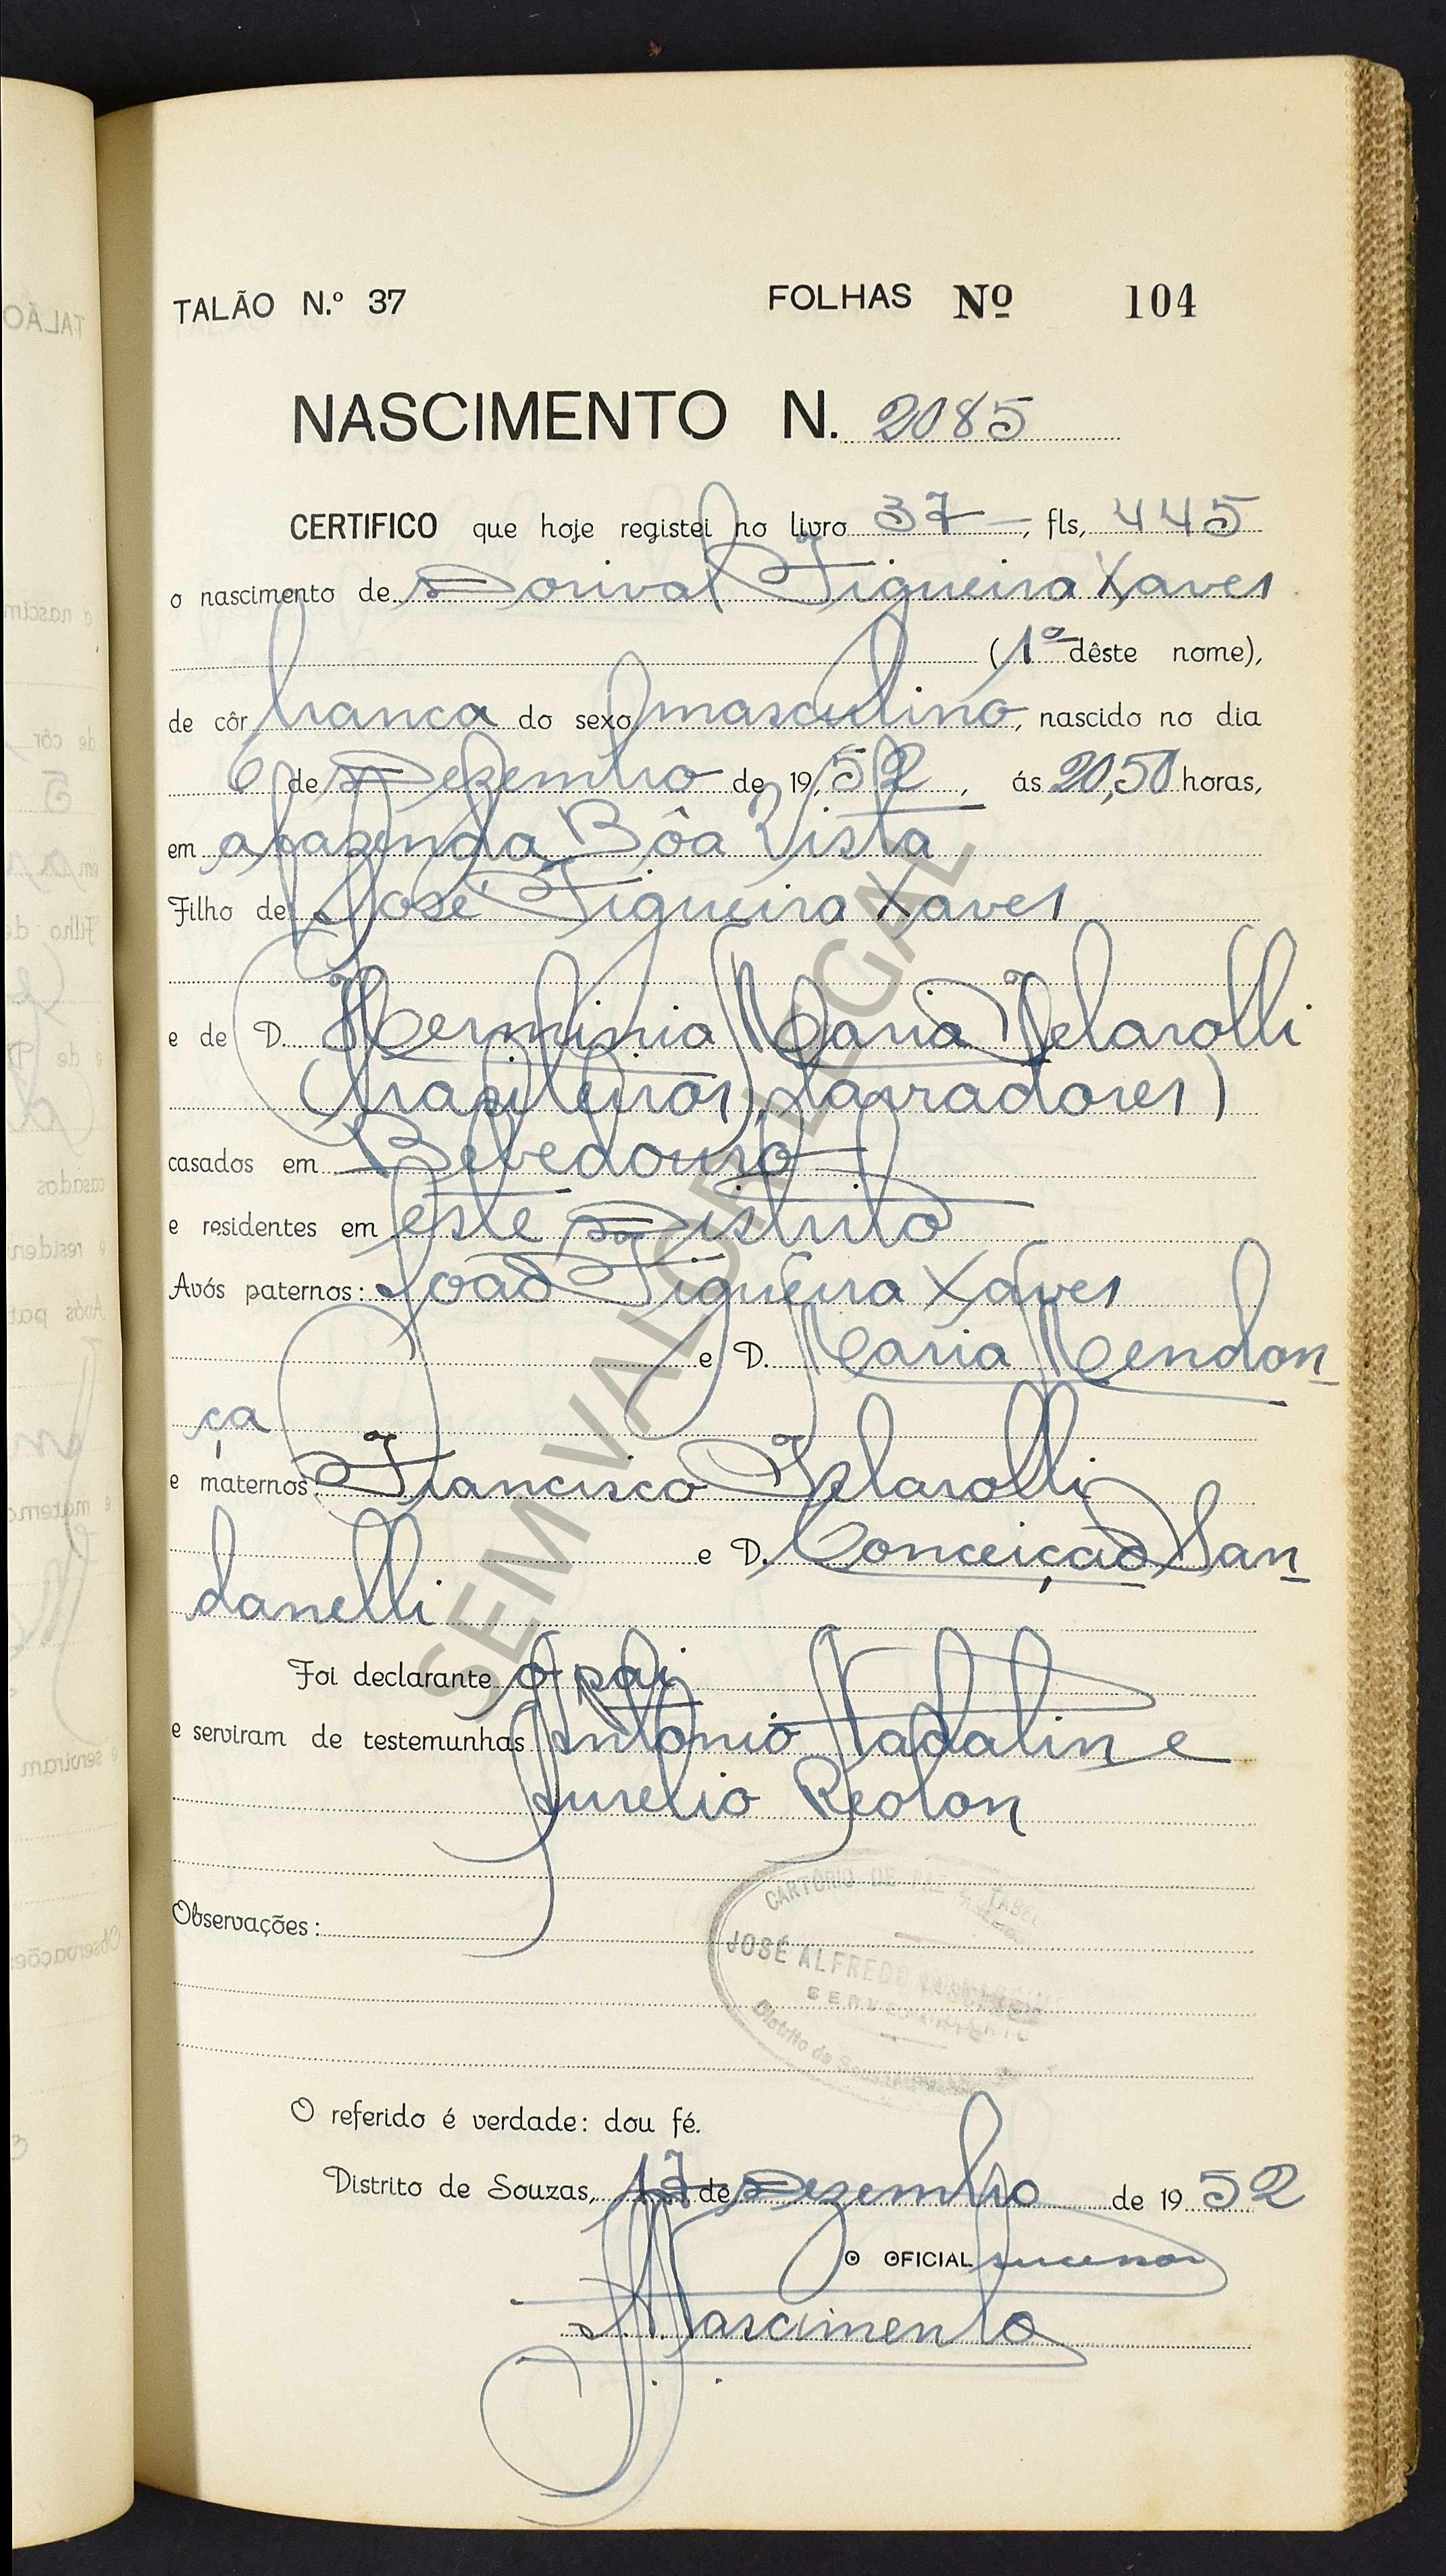 TALÃO N.º 37 FOLHAS Nº 104
NASCIMENTO N. 2085
CERTIFICO que hoje registei no livro 37 —, fls, 445
o nascimento de Dorival Figueira Xaves
(1º dêste nome),
de côr branca do sexo masculino, nascido no dia
6 de Dezembro de 1952, ás 20,50 horas,
em a fazenda Bôa Vista
Filho de José Figueira Xaves
e de D. Herminia Maria Velarolli
(brasileiros, lavradores)
casados em Bebedouro
e residentes em este Distrito
Avós paternos: João Figueira Xaves
e D. Maria Mendon
ça
e maternos: Francisco Velarolli
e D. Conceição San
danelli
Foi declarante o pai
e serviram de testemunhas Antonio Nadalin e
Aurelio Reolon
CARTÓRIO DE PAZ TABEL
Observações:
JOSÉ ALFREDO
Distrito de
O referido é verdade: dou fé.
Distrito de Souzas, 13 de Dezembro de 1952
O OFICIAL sucessor
Nascimento
SEM VALOR LEGAL